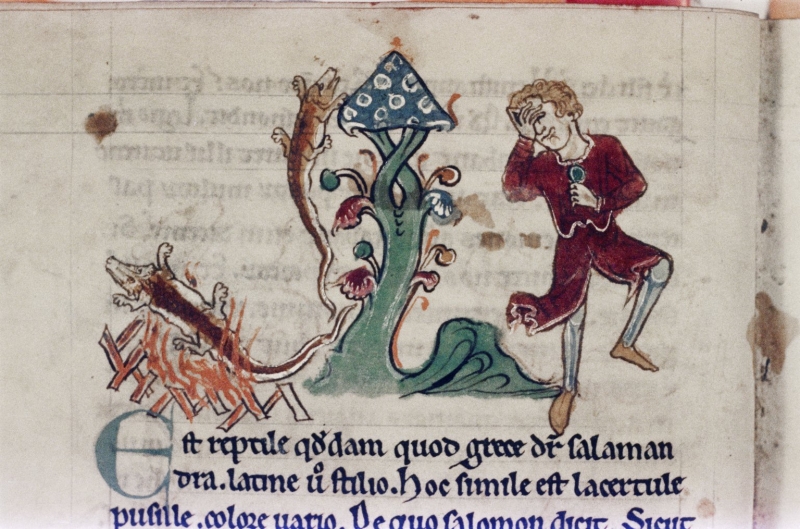 Est reptile qd̄dam quod grece dr̄ salaman
dra. latine ū stilio. hoc simile est lacertule
pusille, colore uario. De quo salomon dicit. Sicut